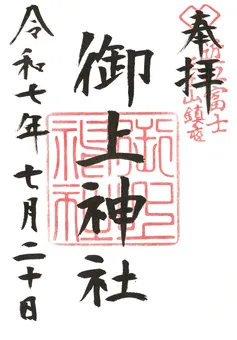 奉拝
近江富士
山鎮座
御上神社
令和七年七月二十日